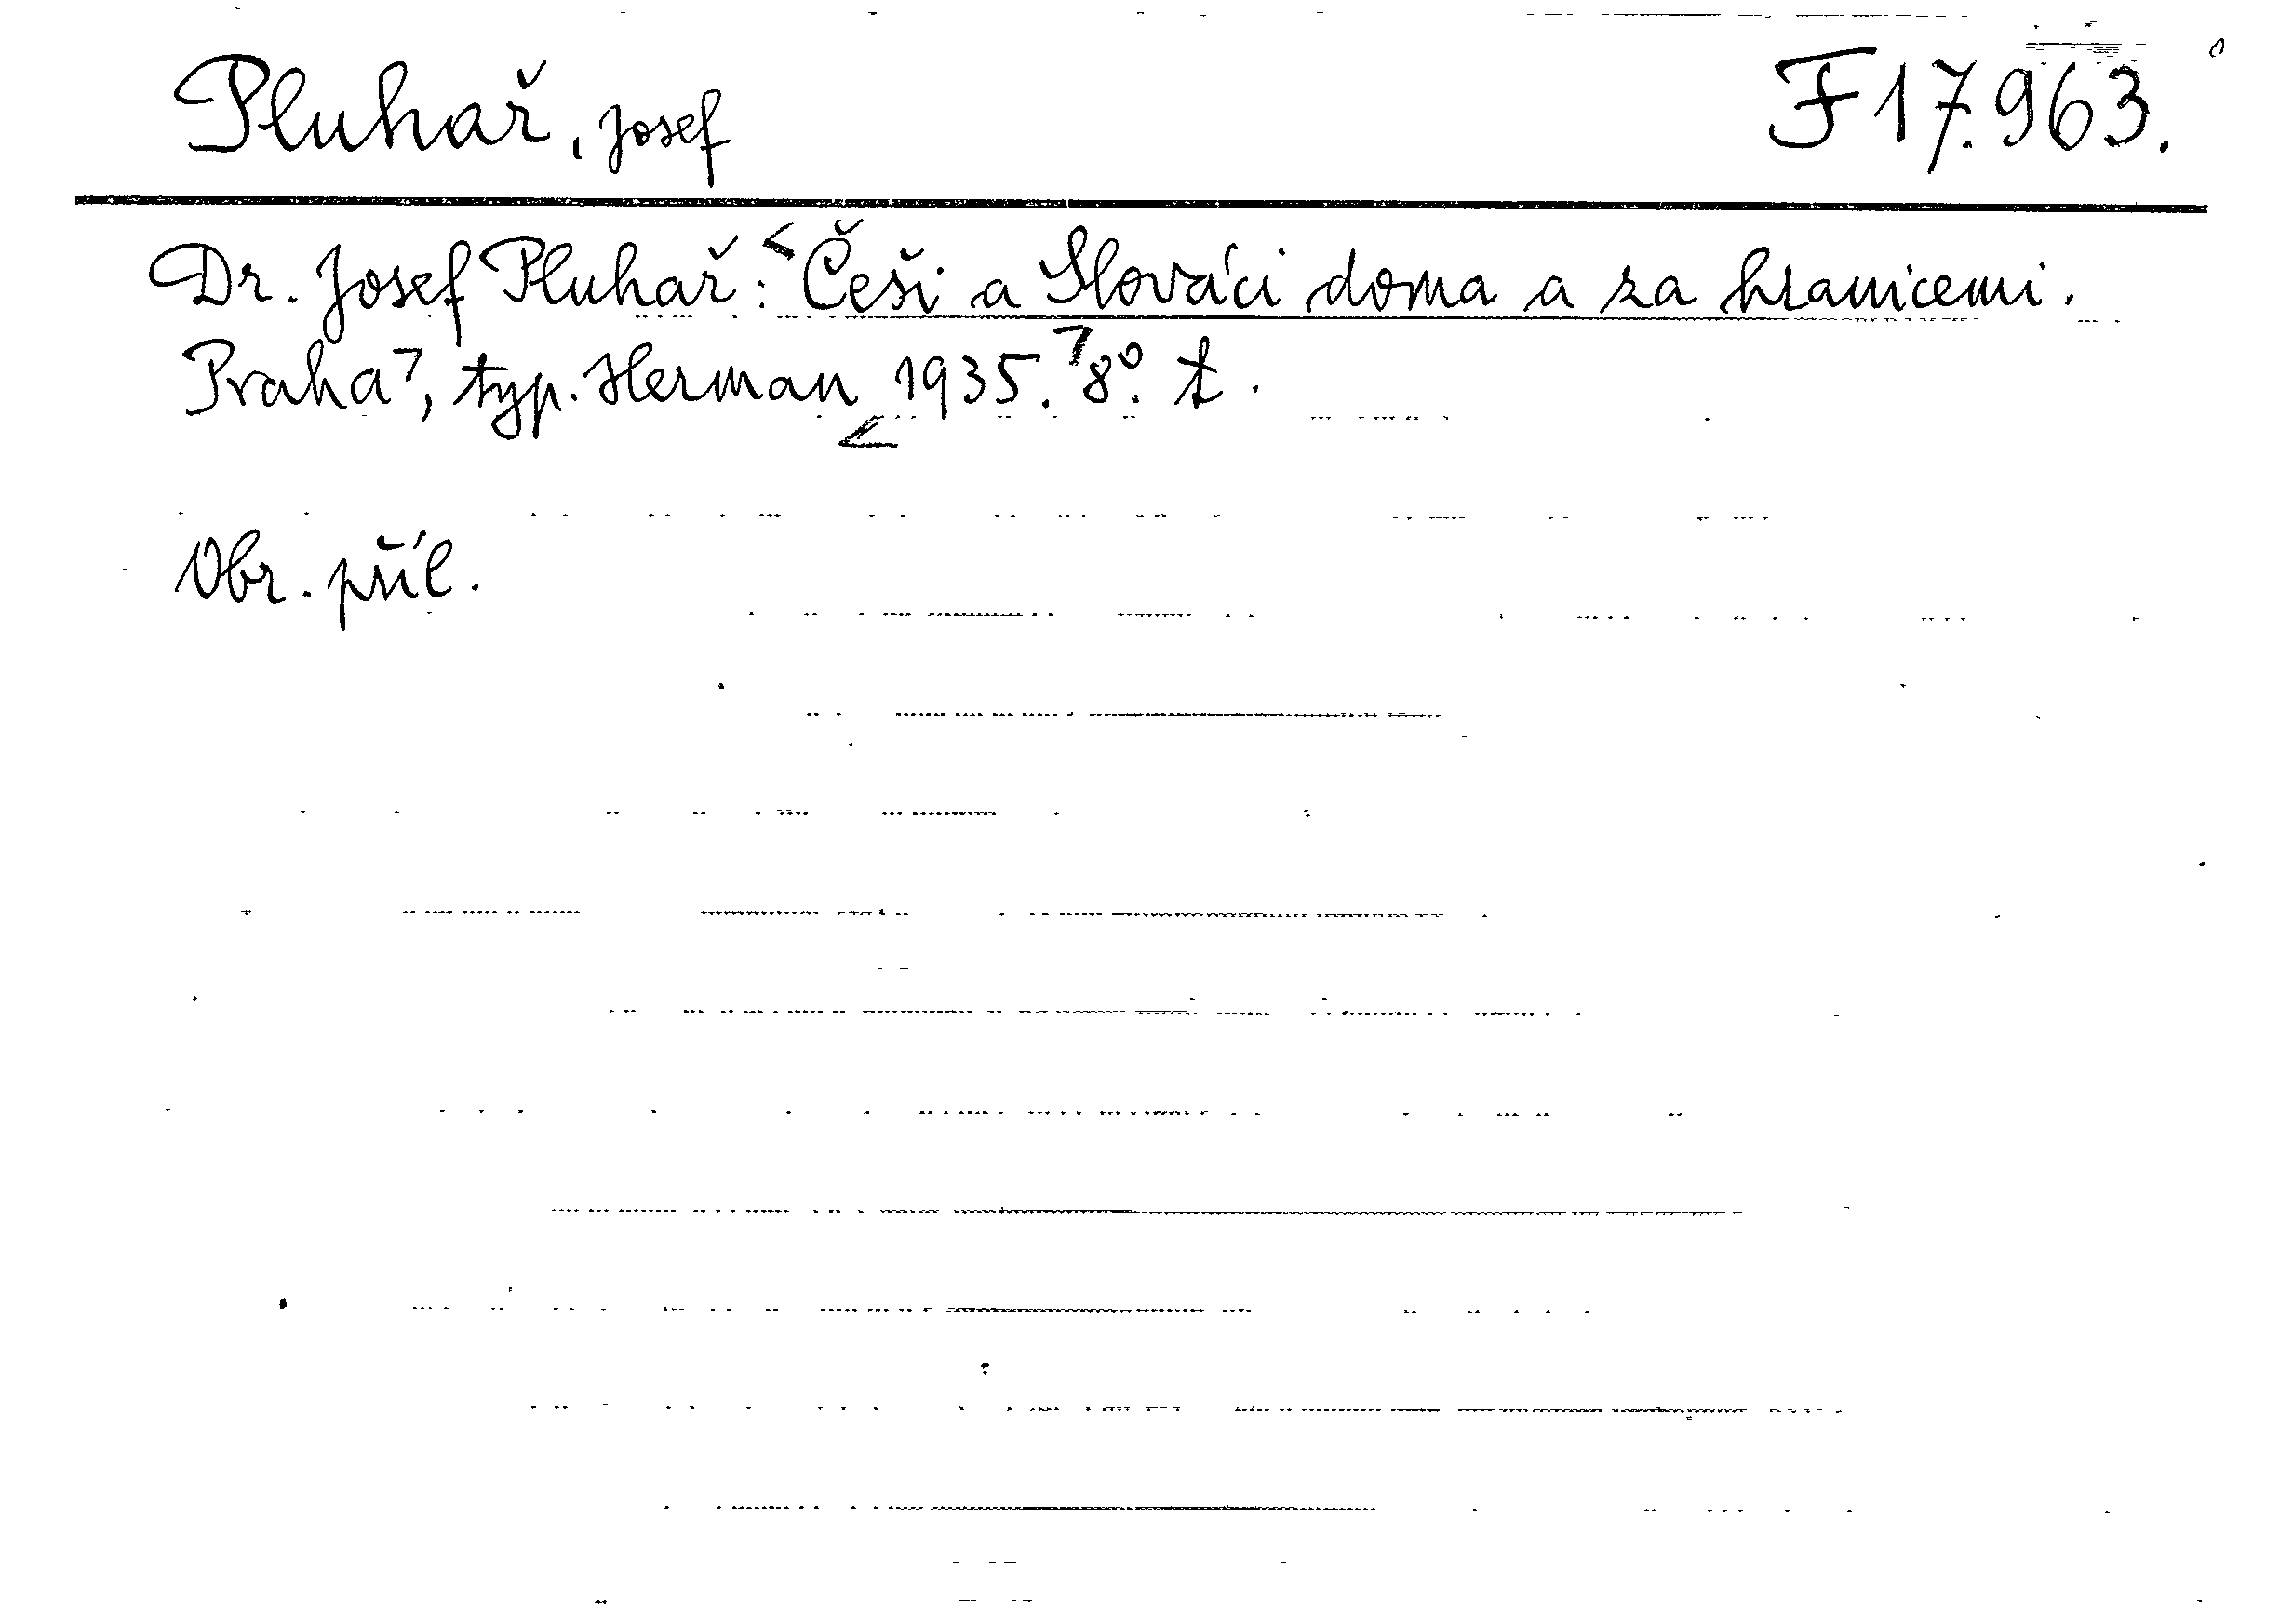 Pluhař, Josef F 17.963.
Dr. Josef Pluhař: Češi a Slováci doma a za hranicemi.
Praha, typ. Herman 1935. 8°. t.
Obr. příl.